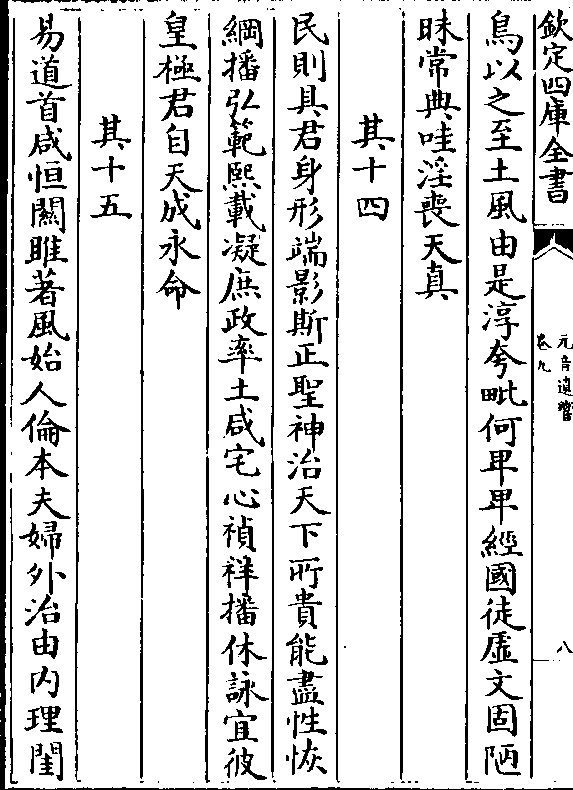 欽定四庫全書
元音遺響
卷九
八
鳥以之至土風由是淳夸毗何卑卑經國徒虛文固陋
昧常典哇淫喪天真
其十四
民則具君身形端影斯正聖神治天下所貴能盡性恢
綱播弘範熙載凝庶政率土咸宅心禎祥播休詠宜彼
皇極君自天成永命
其十五
易道首咸恒關雎著風始人倫本夫婦外治由内理閨